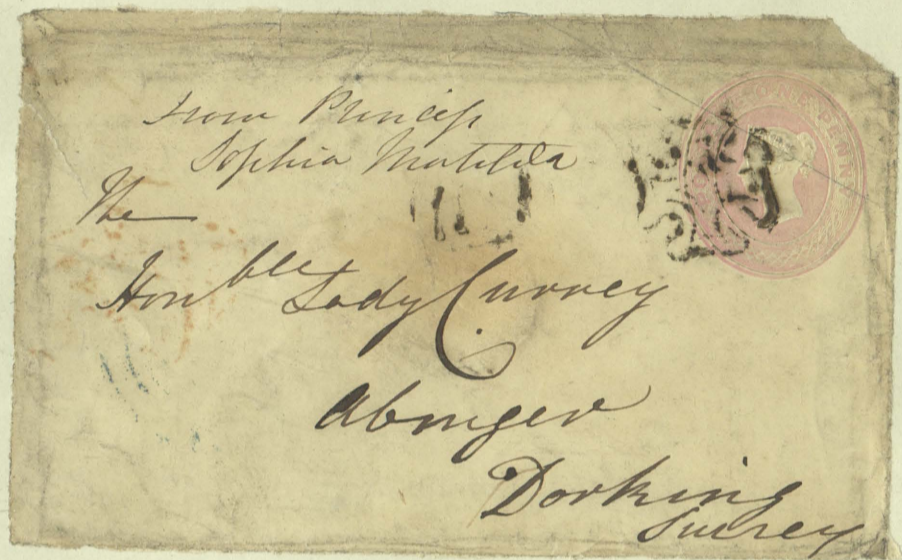 From Princess
Sophia Matilda
The
Honble Lady Currey
Abinger
Dorking
Surrey
ONE PENNY